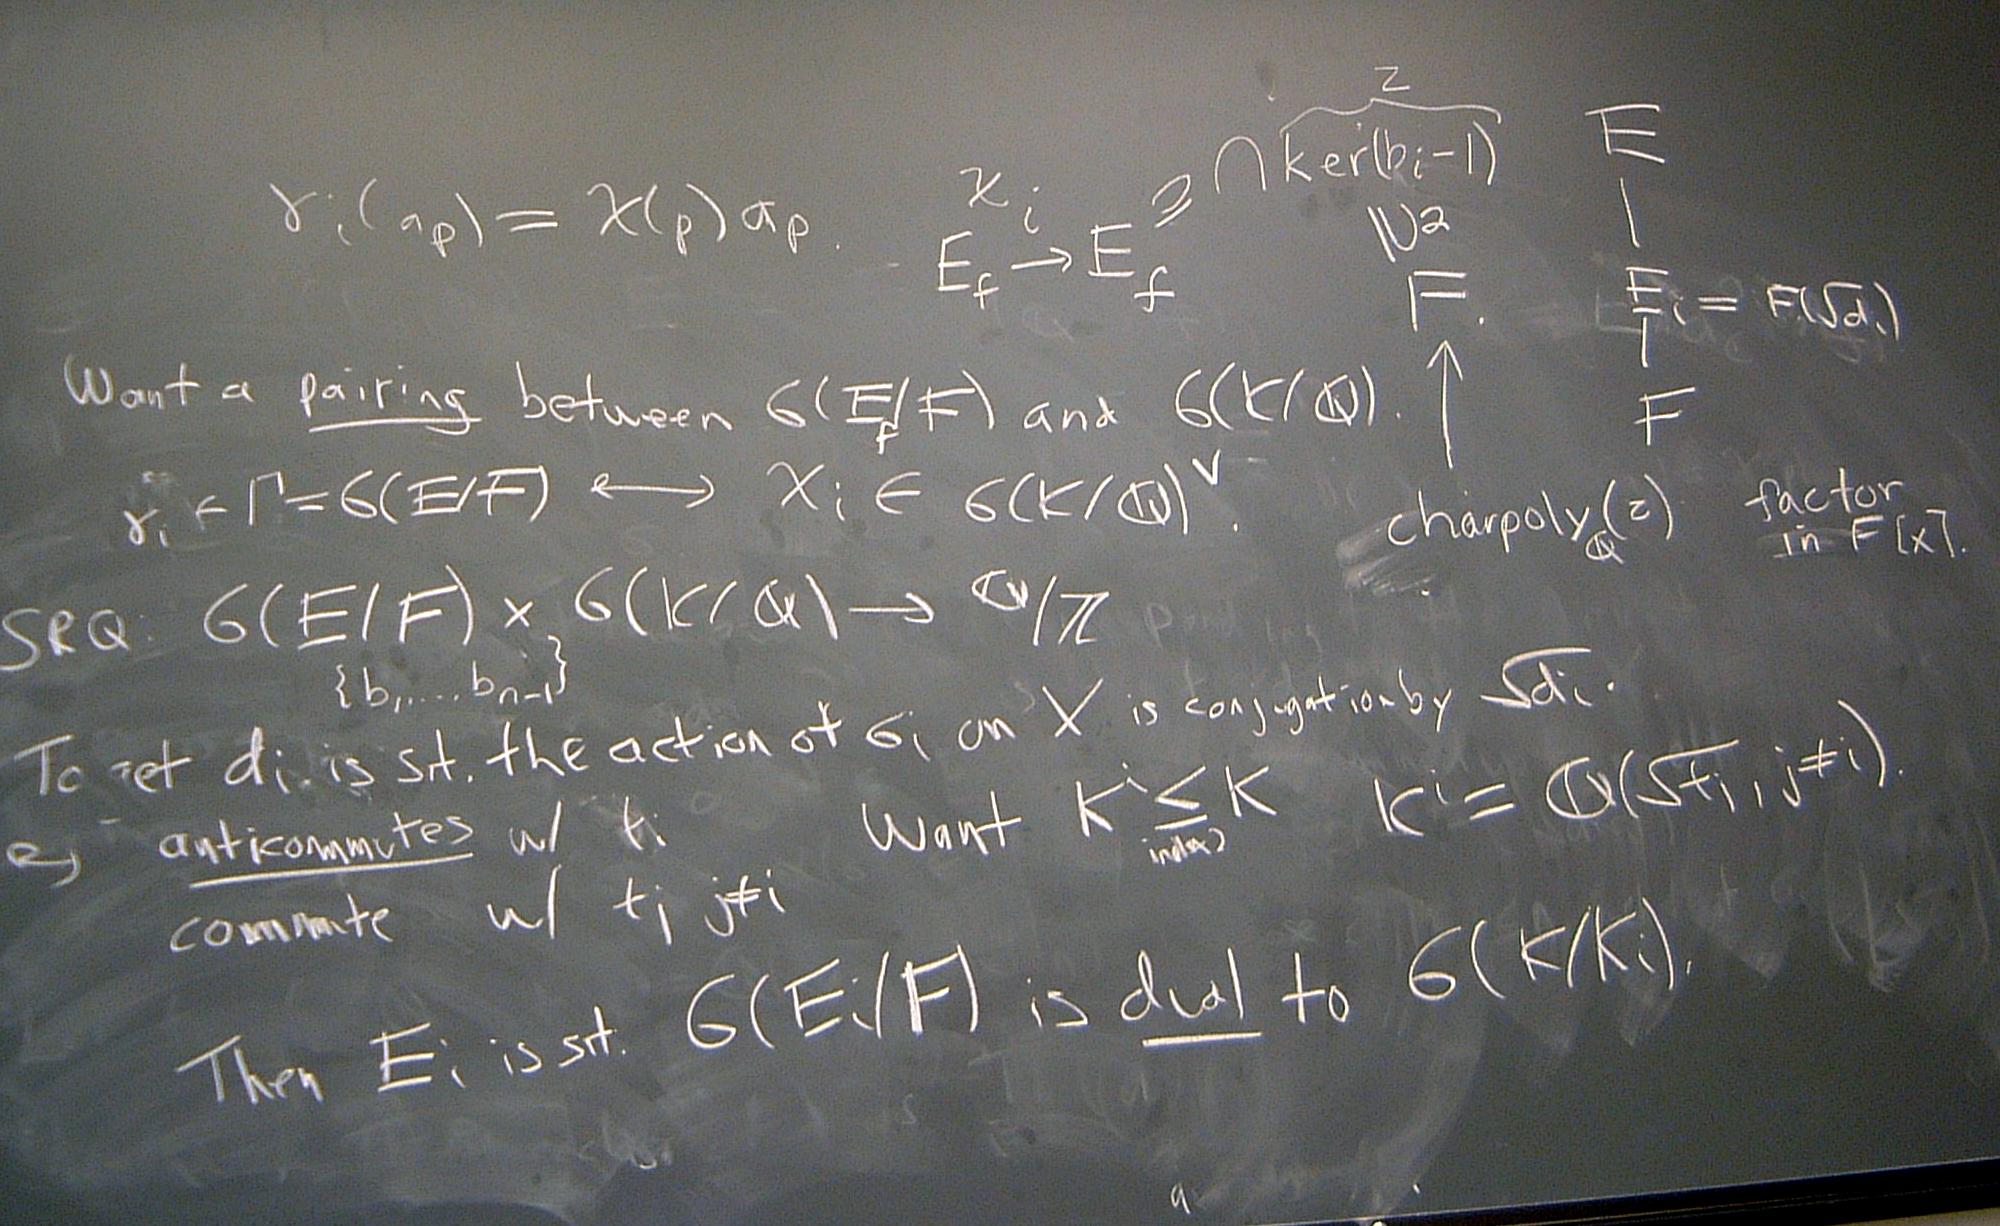 γi(ap) = χ(p) ap.
χi
Ef → Ef ⊇ ∩ ker(bi-1)
z
F.
E
|
Ei = F(√di)
|
F
Want a pairing between G(Ef/F) and G(K/Q).
↑
γi ∈ Γ = G(E/F) ↔ χi ∈ G(K/Q)^∨.
charpoly_Q(z) factor
in F[x].
SRQ: G(E/F) × G(K/Q) → Q/Z
{b1, ... bn-1}
To get di is s.t. the action of σi on X is conjugation by √di.
eg anticommutes w/ ti
Want K^i ≤ K K^i = Q(√tj, j≠i).
index 2
commute w/ tj j≠i
Then Ei is s.t. G(Ei/F) is dual to G(K/Ki).